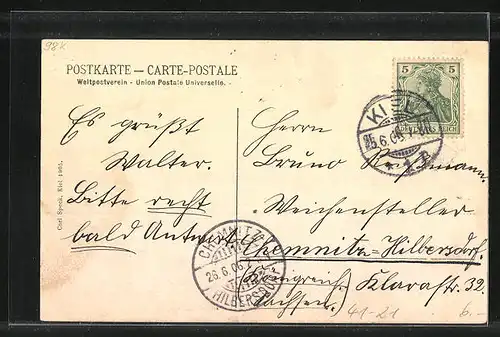 98K
POSTKARTE — CARTE-POSTALE
Weltpostverein - Union Postale Universelle.
5 5
DEUTSCHES REICH
KIEL
Es grüßt
Walter.
Bitte recht
bald Antwort.
Herrn
Bruno
Weichensteller
Chemnitz-Hilbersdorf
(Königreich Klarastr. 32.
Sachsen.)
CHEMNITZ
26.6.06
HILBERSDORF
Carl Speck, Kiel 1905.
41-21
6.-